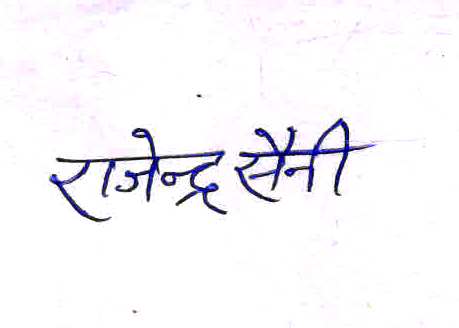 राजेन्द्र सैनी